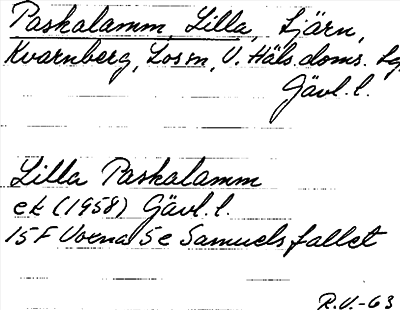 Paskalamm, Lilla, tjärn,
Kvarnberg, Los sn, V. Häls. doms. tg.
Gävl. l.
Lilla Paskalamm
ek (1958) Gävl. l.
15F Voxna 5e Samuelsfallet
R.V.-63